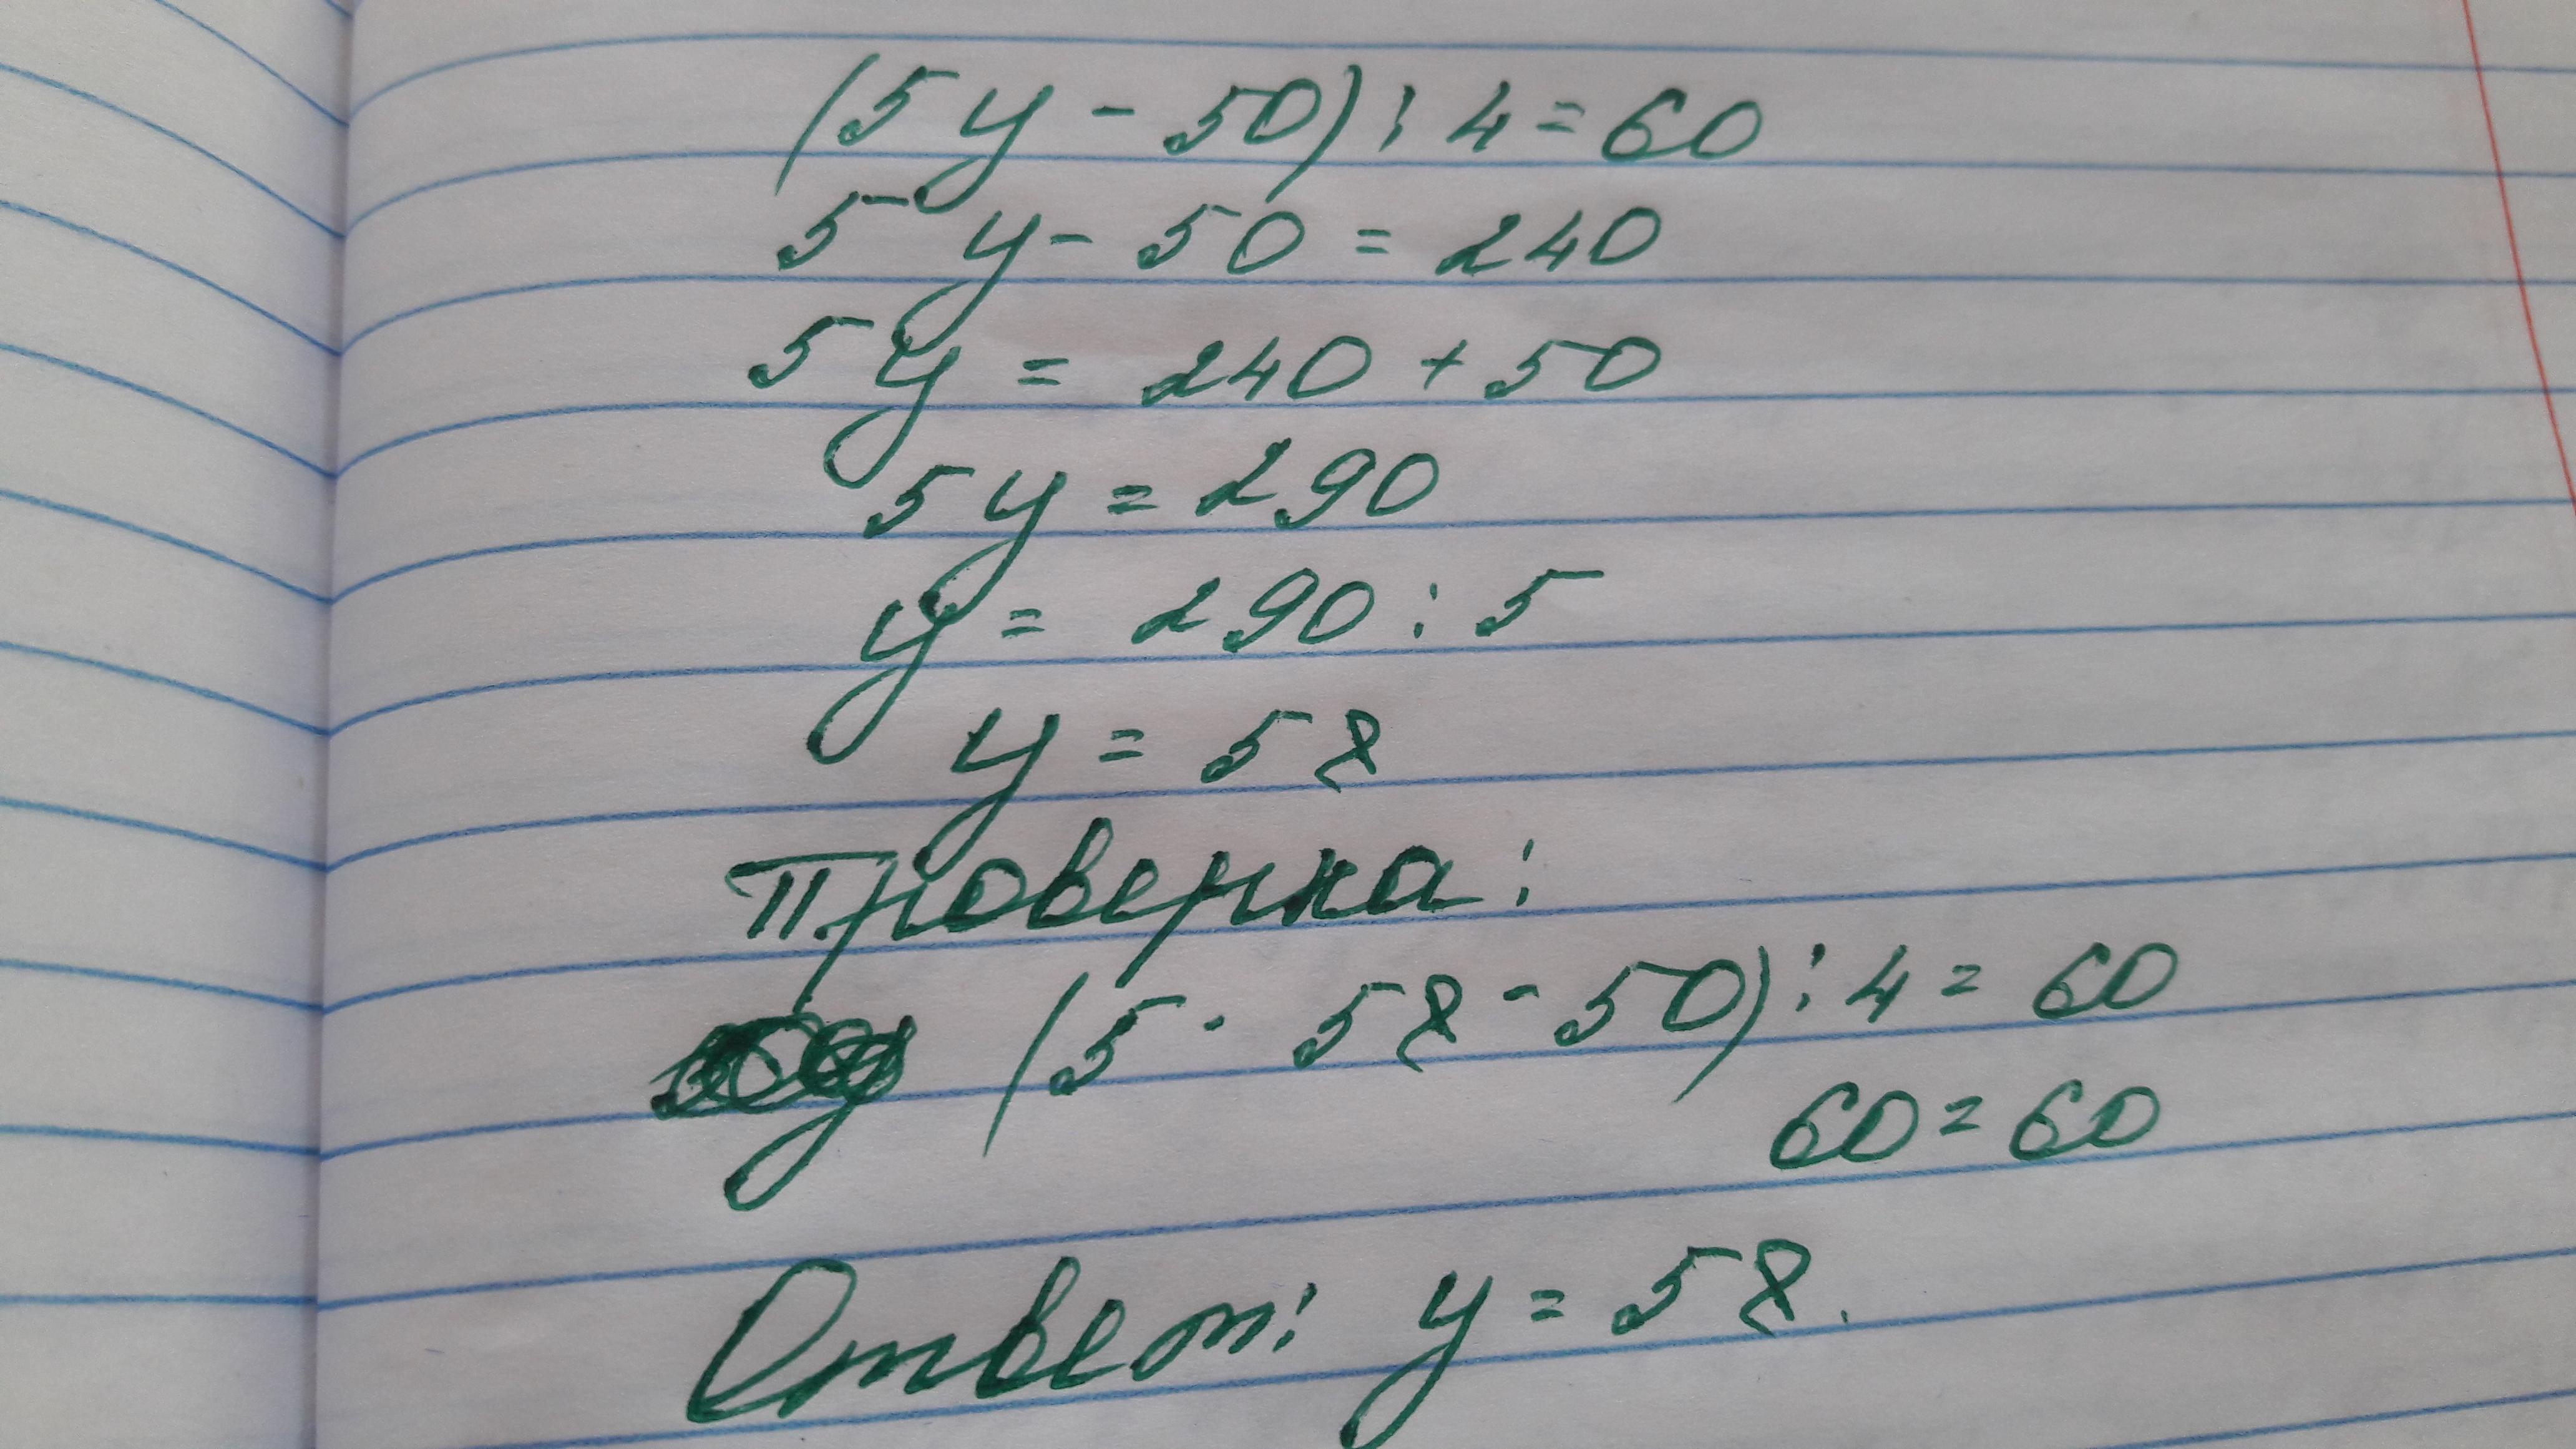 (5y - 50) : 4 = 60
5y - 50 = 240
5y = 240 + 50
5y = 290
y = 290 : 5
y = 58
Проверка:
(5 · 58 - 50) : 4 = 60
60 = 60
Ответ: y = 58.